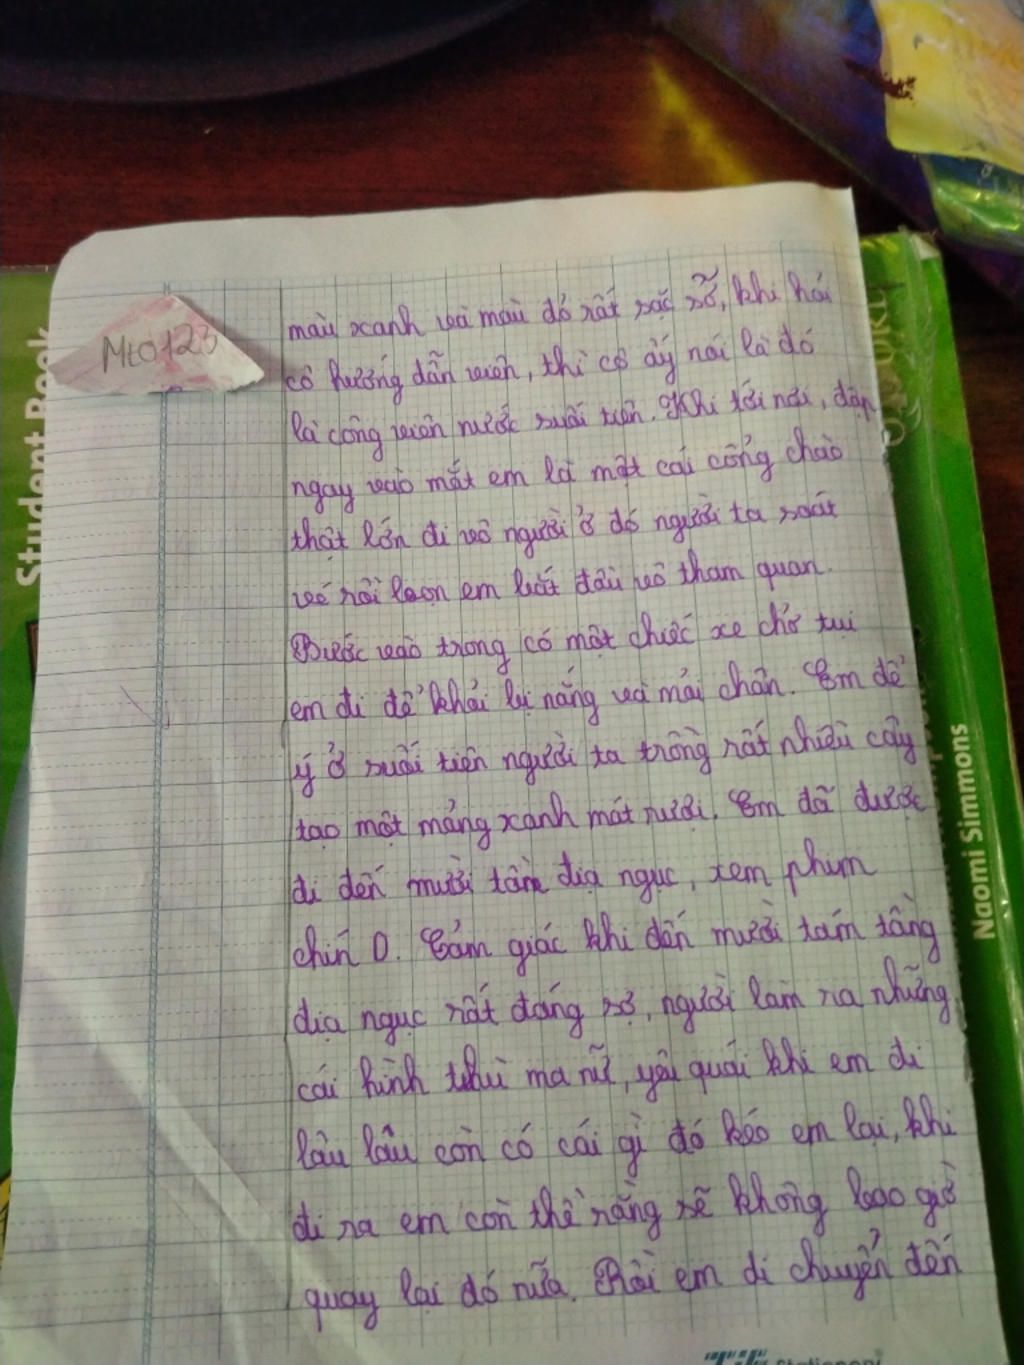 Mt0123
màu xanh và màu đỏ rất sặc sỡ, khi hỏi
cô hướng dẫn viên, thì cô ấy nói là đó
là công viên nước suối tiên. Khi tới nơi, đập
ngay vào mắt em là một cái cổng chào
thật lớn đi vô người ở đó người ta soát
vé rồi bọn em bắt đầu vô tham quan.
Bước vào trong có một chiếc xe chở tụi
em đi để khải bị nắng và mỏi chân. Em để
ý ở suối tiên người ta trồng rất nhiều cây
tạo một mảng xanh mát rượi. Em đã được
đi đến mười tám địa ngục, xem phim
chín D. Cảm giác khi đến mười tám tầng
địa ngục rất đáng sợ, người làm ra những
cái hình thù ma nữ, yêu quái khi em đi
lâu lâu còn có cái gì đó kéo em lại, khi
đi ra em còn thề rằng sẽ không bao giờ
quay lại đó nữa. Rồi em di chuyển đến
Student Book
Naomi Simmons